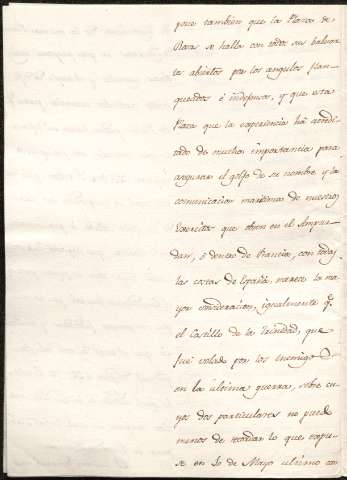 pone tambien que la Plaza de
Rosas se halla con todos sus baluar
tes abiertos por los angulos flan
queados é indefensos, y que esta
Plaza que la experiencia ha acredi
tado de mucha importancia para
asegurar el golfo de su nombre y la
comunicacion maritima de nuestros
Exercitos que obren en el Ampur
dan, ó dentro de Francia, con todas
las costas de España, merece la ma
yor consideracion, igualmente qe.
el Castillo de la Trinidad, que
fué volado por los enemigos
en la ultima guerra, sobre cu
yos dos particulares no puedo
menos de recordar lo que expu
se en 30 de Mayo ultimo con